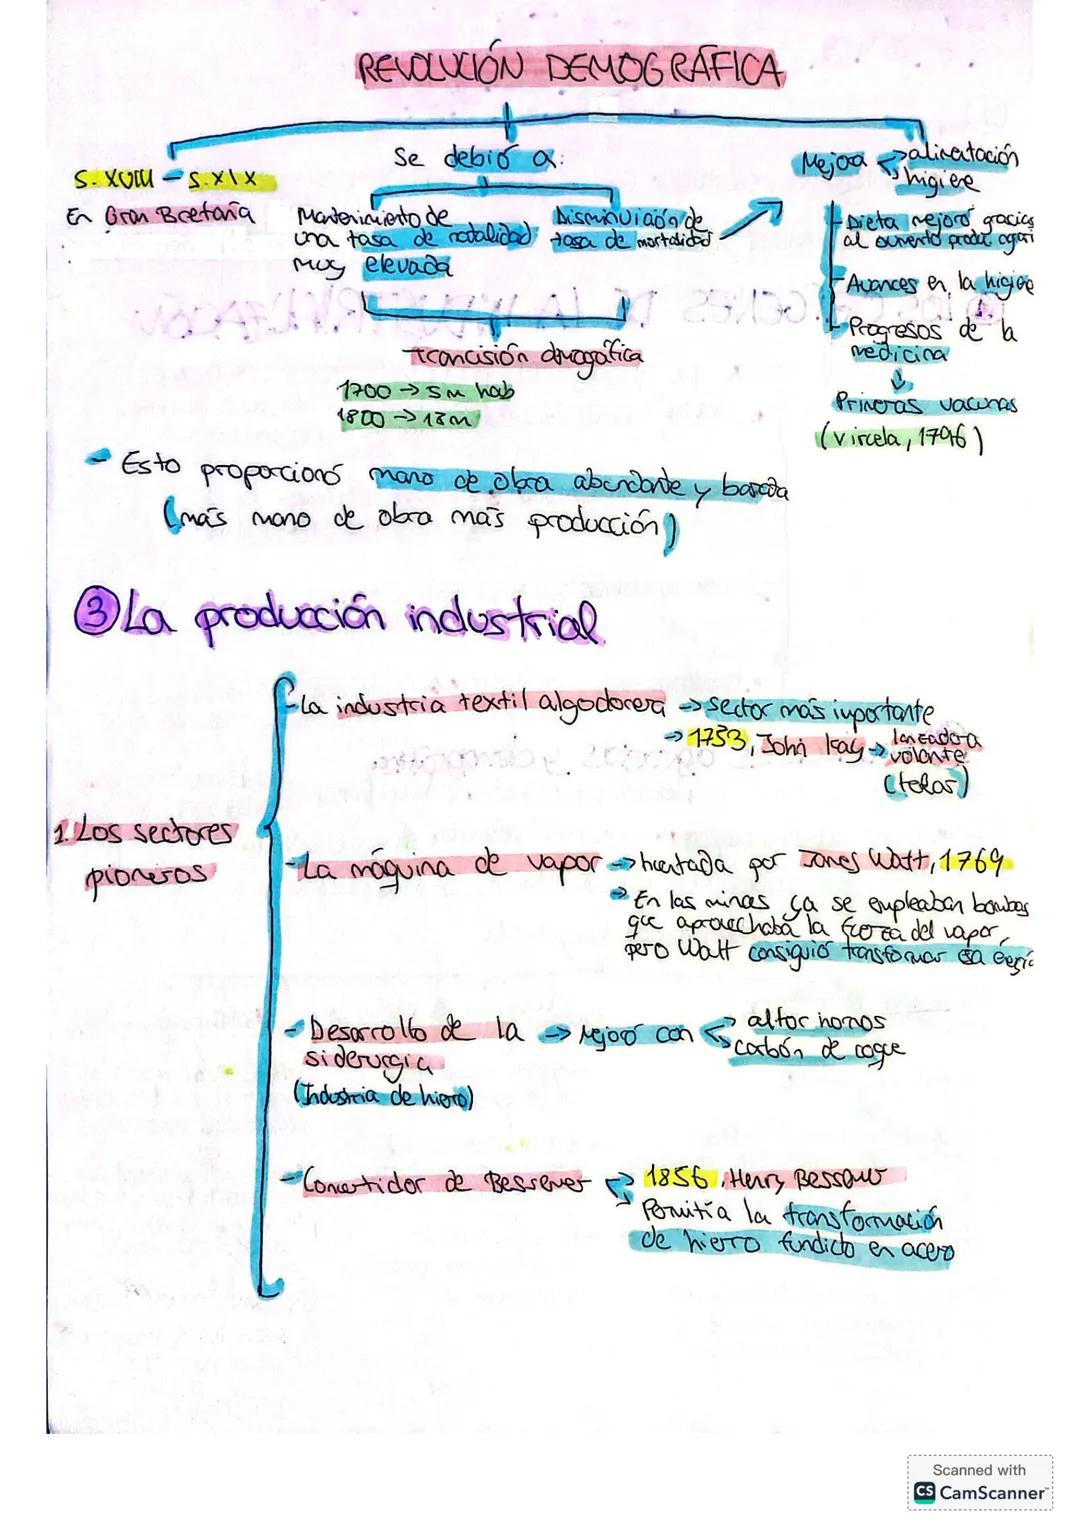 REVOLUCIÓN DEMOGRÁFICA
S. XVIII - S. XIX
En Gran Bretaña
Se debió a:
Mantenimiento de
una tasa de natalidad
muy elevada
Disminución de
tasa de mortalidad
Mejora
alimentación
higiene
Dieta mejoró gracias
al aumento produc agrari
Avances en la higiene
Progresos de la
medicina
Primeras vacunas
(Viruela, 1796)
Transición demográfica
1700 → 5 m hab
1800 → 18 m
- Esto proporcionó mano de obra abundante y barata
(más mano de obra más producción)
③ La producción industrial
1. Los sectores
pioneros
- La industria textil algodonera → sector más importante
→ 1733, John Kay → lanzadora
volante
(telar)
- La máquina de vapor → inventada por James Watt, 1769
→ En las minas ya se empleaban bombas
que aprovechaba la fuerza del vapor,
pero Watt consiguió transformar esa energía
- Desarrollo de la → Mejoró con
siderurgia
(Industria de hierro)
→ altor hornos
→ carbón de coque
- Convertidor de Bessemer → 1856, Henry Bessemer
→ Permitía la transformación
de hierro fundido en acero
Scanned with
CS CamScanner